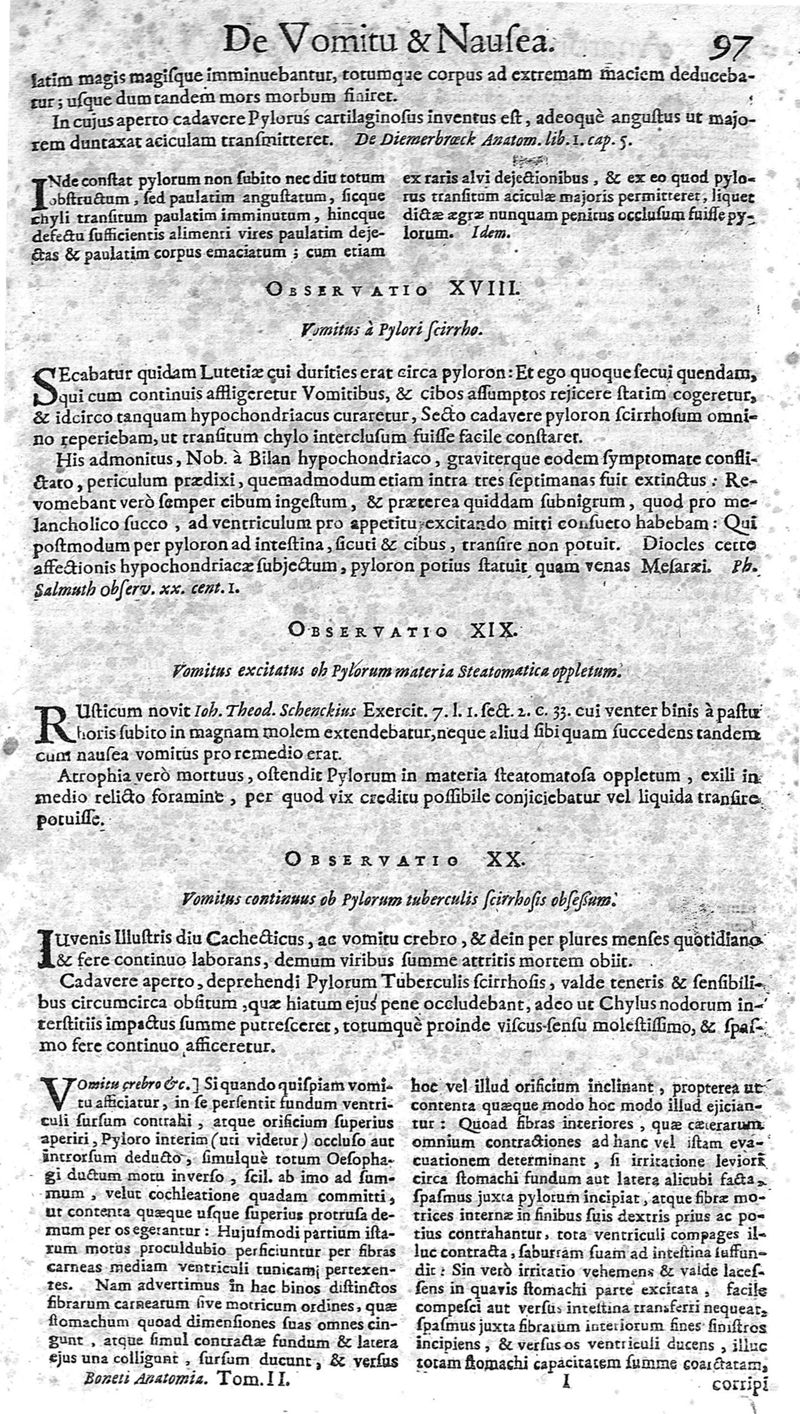 De Vomitu & Nauſea. 97
latim magis magiſque imminuebantur, totumque corpus ad extremam maciem deduceba-
tur; uſque dum tandem mors morbum finiret.
In cujus aperto cadavere Pylorus cartilaginoſus inventus eſt, adeoquè anguſtus ut majo-
rem duntaxat aciculam tranſmitteret. De Diemerbrœck Anatom. lib. 1. cap. 5.
INde conſtat pylorum non ſubito nec diu totum
obſtructum, ſed paulatim anguſtatum, ſicque
chyli tranſitum paulatim imminutum, hincque
defectu ſufficientis alimenti vires paulatim deje-
ctas & paulatim corpus emaciatum; cum etiam
ex raris alvi dejectionibus, & ex eo quod pylo-
rus tranſitum aciculæ majoris permitteret, liquet
dictæ ægræ nunquam penitus occluſum fuiſſe py-
lorum. Idem.
OBSERVATIO XVIII.
Vomitus à Pylori ſcirrho.
SEcabatur quidam Lutetiæ cui durities erat circa pyloron: Et ego quoque ſecui quendam,
qui cum continuis affligeretur Vomitibus, & cibos aſſumptos rejicere ſtatim cogeretur,
& idcirco tanquam hypochondriacus curaretur, Secto cadavere pyloron ſcirrhoſum omni-
no reperiebam, ut tranſitum chylo intercluſum fuiſſe facile conſtaret.
His admonitus, Nob. à Bilan hypochondriaco, graviterque eodem ſymptomate confli-
ctato, periculum prædixi, quemadmodum etiam intra tres ſeptimanas fuit extinctus: Re-
vomebant verò ſemper cibum ingeſtum, & præterea quiddam ſubnigrum, quod pro me-
lancholico ſucco, ad ventriculum pro appetitu excitando mitti conſueto habebam: Qui
poſtmodum per pyloron ad inteſtina, ſicuti & cibus, tranſire non potuit. Diocles certe
affectionis hypochondriacæ ſubjectum, pyloron potius ſtatuit quam venas Meſaræi. Ph.
Salmuth obſerv. xx. cent. 1.
OBSERVATIO XIX.
Vomitus excitatus ob Pylorum materia Steatomatica oppletum.
RUſticum novit Ioh. Theod. Schenckius Exercit. 7. l. 1. ſect. 2. c. 33. cui venter binis à paſtu
horis ſubito in magnam molem extendebatur, neque aliud ſibi quam ſuccedens tandem
cum nauſea vomitus pro remedio erat.
Atrophia verò mortuus, oſtendit Pylorum in materia ſteatomatoſa oppletum, exili in
medio relicto foramine, per quod vix creditu poſſibile conjiciebatur vel liquida tranſire
potuiſſe.
OBSERVATIO XX.
Vomitus continuus ob Pylorum tuberculis ſcirrhoſis obſeßum.
IUvenis Illuſtris diu Cachecticus, ac vomitu crebro, & dein per plures menſes quotidiano
& fere continuo laborans, demum viribus ſumme attritis mortem obiit.
Cadavere aperto, deprehendi Pylorum Tuberculis ſcirrhoſis, valde teneris & ſenſibili-
bus circumcirca obſitum, quæ hiatum ejus pene occludebant, adeo ut Chylus nodorum in-
terſtitiis impactus ſumme putreſceret, totumquè proinde viſcus ſenſu moleſtiſſimo, & ſpaſ-
mo fere continuo afficeretur.
VOmitu crebro &c.] Si quando quiſpiam vomi-
tu afficiatur, in ſe perſentit fundum ventri-
culi ſurſum contrahi, atque orificium ſuperius
aperiri, Pyloro interim (uti videtur) occluſo aut
introrſum deducto, ſimulquè totum Oeſopha-
gi ductum motu inverſo, ſcil. ab imo ad ſum-
mum, velut cochleatione quadam committi,
ut contenta quæque uſque ſuperius protruſa de-
mum per os egerantur: Hujuſmodi partium iſta-
rum motus proculdubio perficiuntur per fibras
carneas mediam ventriculi tunicam pertexen-
tes. Nam advertimus in hac binos diſtinctos
fibrarum carnearum ſive motricum ordines, quæ
ſtomachum quoad dimenſiones ſuas omnes cin-
gunt, atque ſimul contractæ fundum & latera
ejus una colligunt, ſurſum ducunt, & verſus
hoc vel illud orificium inclinant, propterea ut
contenta quæque modo hoc modo illud ejician-
tur: Quoad fibras interiores, quæ cæterarum
omnium contractiones ad hanc vel iſtam eva-
cuationem determinant, ſi irritatione leviori
circa ſtomachi fundum aut latera alicubi facta,
ſpaſmus juxta pylorum incipiat, atque fibræ mo-
trices internæ in finibus ſuis dextris prius ac po-
tius contrahantur, tota ventriculi compages il-
luc contracta, ſaburram ſuam ad inteſtina ſuffun-
dit: Sin verò irritatio vehemens & valde laceſ-
ſens in quavis ſtomachi parte excitata, facile
compeſci aut verſus inteſtina transferri nequeat,
ſpaſmus juxta fibrarum interiorum fines ſiniſtros
incipiens, & verſus os ventriculi ducens, illuc
totam ſtomachi capacitatem ſumme coarctatam,
Boneti Anatomia. Tom. II. I corripi